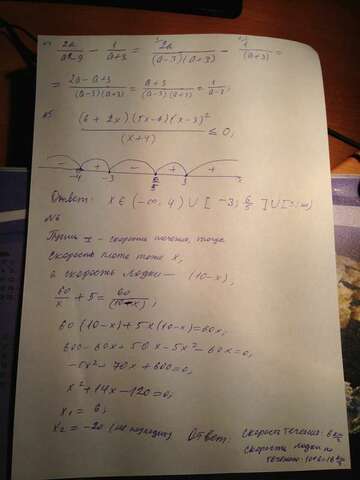 2a/(a²-9) - 1/(a+3) = 2a/((a-3)(a+3)) - 1/(a+3) =
= (2a-a+3)/((a-3)(a+3)) = (a+3)/((a-3)(a+3)) = 1/(a-3);
№5
(6+2x)(5x-6)(x-3)²/(x+4) ≤ 0;
- + - + +
-4 -3 6/5 3 x
Ответ: x ∈ (-∞, 4) ∪ [-3; 6/5] ∪
№6
скорость течения, тогда
скорость плота тоже x,
а скорость лодки — (10-x),
60/x + 5 = 60/(10-x);
60(10-x)+5x(10-x)=60x;
600-60x+50x-5x²-60x=0;
-5x²-70x+600=0;
x²+14x-120=0;
x₁ = 6;
x₂ = -20 (не подходит)
Ответ: скорость течения: 6 км/ч
скорость лодки
течению: 10+6=16 км/ч